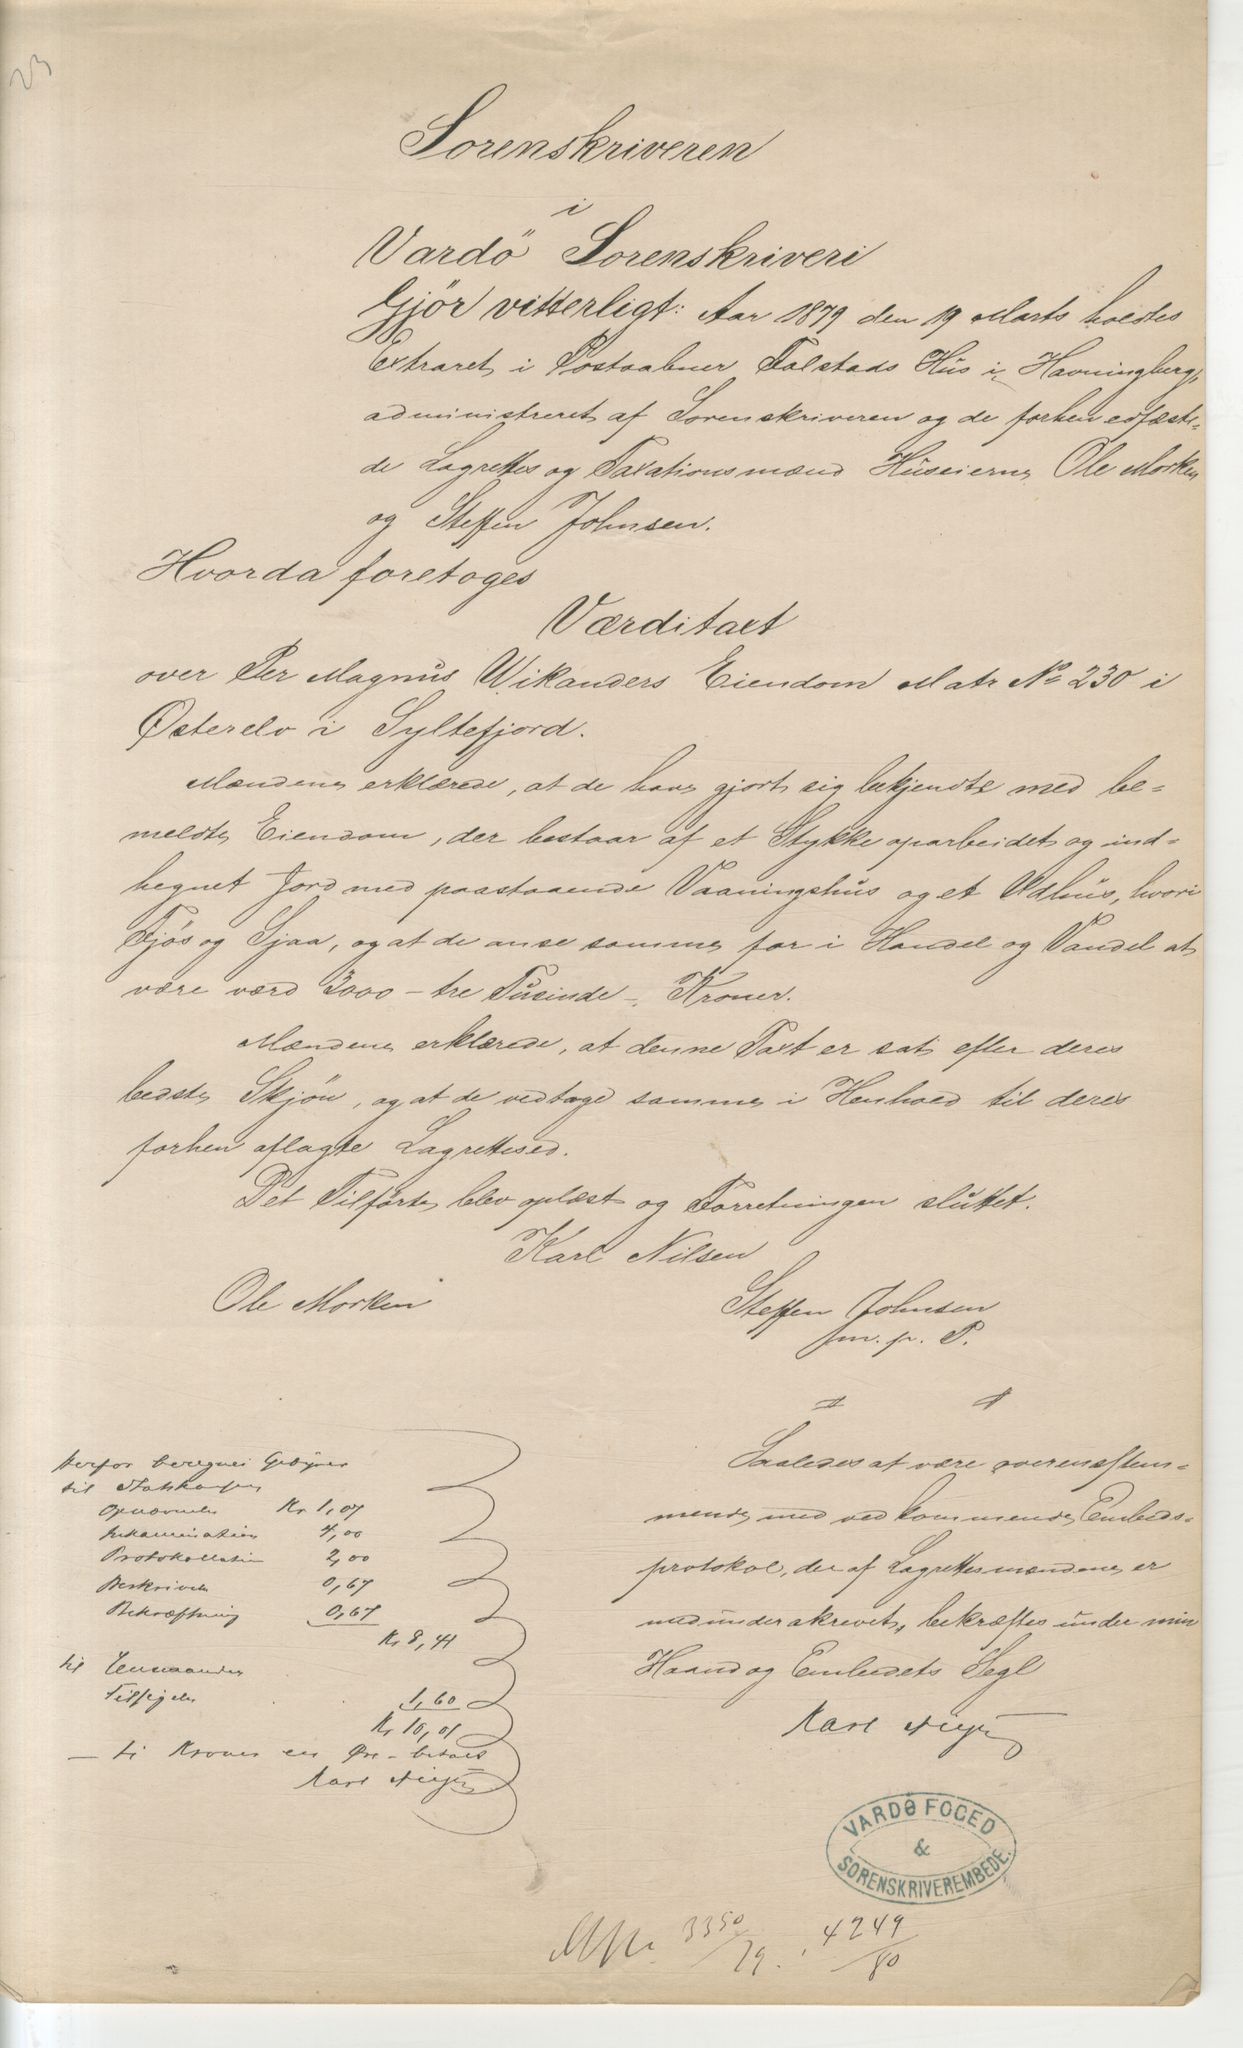 23
Sorenskriveren
i
Vardö Sorenskriveri
Gjör vitterligt: Aar 1879 den 19 Marts holdtes
Extraret i Postaabner Falstads Hus i Havningberg,
administreret af Sorenskriveren og de forhen edfæste-
de Lagrettes og Taxationsmænd Huseierne Ole Morken
og Steffen Johnsen.
Hvorda foretoges
Værditaxt
over Per Magnus Wikanders Eiendom Matr No 230 i
Østerelv i Syltefjord.
Mændene erklærede, at de have gjort sig bekjendte med be-
meldte Eiendom, der bestaar af et Stykke oparbeidet og ind-
hegnet Jord med paastaaende Vaaningshus og et Udhus, hvori
Fjös og Sjaa, og at de anse samme for i Handel og Vandel at
være værd 3000 - tre Tusinde - Kroner.
Mændene erklærede, at denne Taxt er sat efter deres
bedste Skjön, og at de vedtage samme i Henhold til deres
forhen aflagte Lagrettesed.
Det Tilförte blev oplæst og Forretningen sluttet.
Karl Nilsen
Ole Morken Steffen Johnsen
m. p. P.
Saaledes at være overensstem-
mende med vedkommende Embeds-
protokol, der af Lagrettesmændene er
medunderskrevet, bekræftes under min
Haand og Embedets Segl
Karl
Herfor beregnes Gebyrer
til Statskassen
Opnævnelse Kr 1,07
4,00
Protokollation 2,00
Beskrivelse 0,67
Bekræftning 0,67
Kr 8,41
til
Tilsigelse 1,60
Kr 10,01
- ti Kroner en Øre - betalt
Karl
VARDÖ FOGED
&
SORENSKRIVEREMBEDE.
3350/79. 4249/80